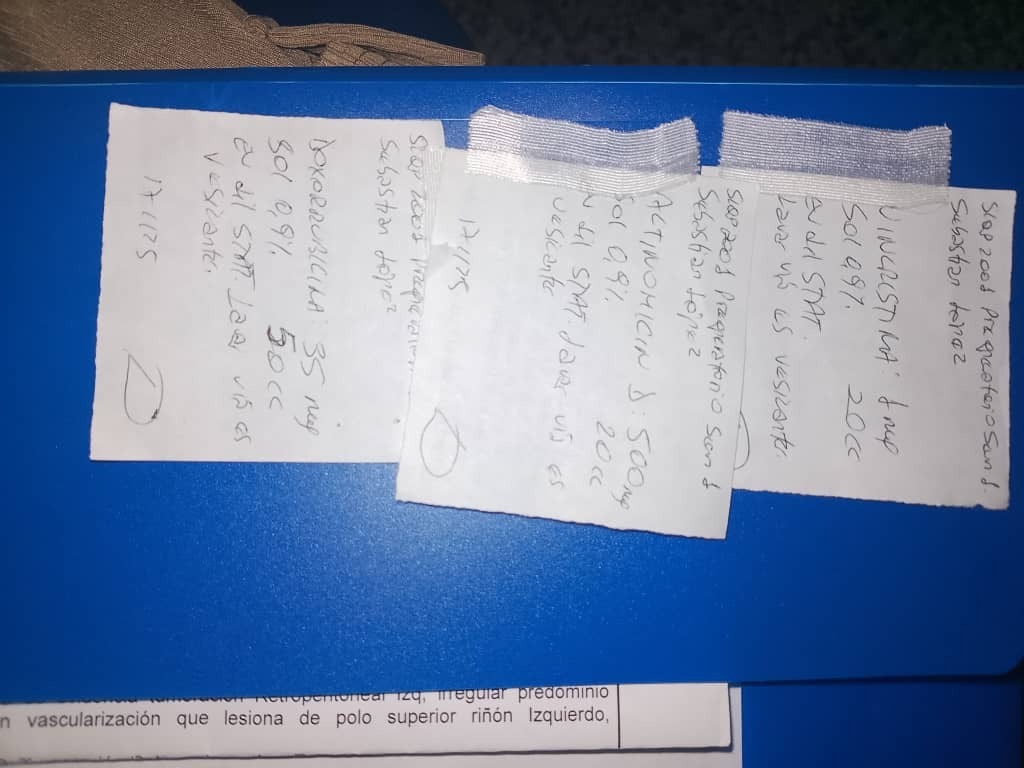 SIOP 2001 Preoperatorio Sem 1.
Sebastian López
VINCRISTINA: 1 mg
Sol 0,9% 20cc
EV dil STAT.
Lavar vía es vesicante.
SIOP 2001 Preoperatorio Sem 1
Sebastian López
ACTINOMICIN D: 500 mg
Sol 0,9% 20cc
dil STAT Lavar vía es
vesicante
17/1/25
SIOP 2001
Sebastian López
DOXORRUBICINA: 35 mg
Sol 0,9% 50cc
EV dil STAT Lavar vía es
vesicante.
17/1/25
Retroperitoneal Izq, irregular predominio
n vascularización que lesiona de polo superior riñón Izquierdo,